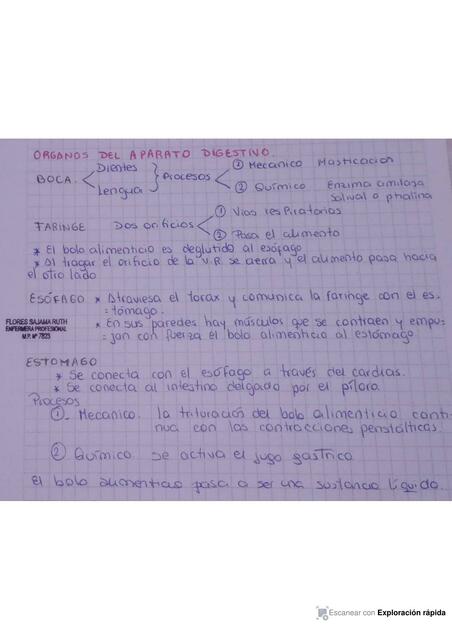 ORGANOS DEL APARATO DIGESTIVO.
BOCA. Dientes Lengua Procesos ① Mecanico Masticacion
② Químico Enzima amilasa salival o ptialina
FARINGE Dos orificios ① Vias respiratorias
② Pasa el alimento
* El bolo alimenticio es deglutido al esófago
* Al tragar el orificio de la V.R. se cierra y el alimento pasa hacia
el otro lado
ESÓFAGO * Atraviesa el torax y comunica la faringe con el es-
tómago.
* En sus paredes hay músculos que se contraen y empu-
jan con fuerza el bolo alimenticio al estómago
FLORES SAJAMA RUTH
ENFERMERA PROFESIONAL
M.P. Nº 7823
ESTOMAGO
* Se conecta con el esófago a través del cardias.
* Se conecta al intestino delgado por el píloro.
Procesos
①- Mecanico. la trituración del bolo alimenticio conti-
nua con las contracciones peristálticas.
② Químico se activa el jugo gastrico
El bolo alimenticio pasa a ser una sustancia líquida.
Escanear con Exploración rápida